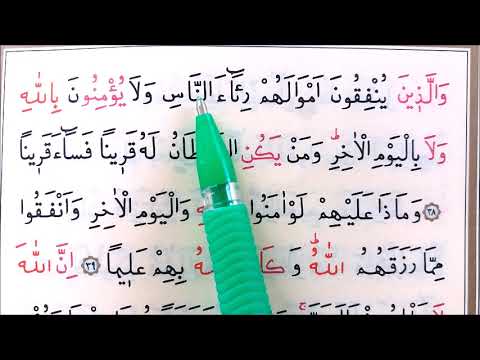 وَالَّذ۪ينَ يُنْفِقُونَ اَمْوَالَهُمْ رِئَٓاءَ النَّاسِ وَلَا يُؤْمِنُونَ بِاللّٰهِ
وَلَا بِالْيَوْمِ الْاٰخِرِۜ وَمَنْ يَكُنِ لَهُ قَر۪ينًا فَسَٓاءَ قَر۪ينًا
﴿٣٨﴾ وَمَاذَا عَلَيْهِمْ لَوْ اٰمَنُوا وَالْيَوْمِ الْاٰخِرِ وَاَنْفَقُوا
مِمَّا رَزَقَهُمُ اللّٰهُۜ بِهِمْ عَل۪يمًا ﴿٣٩﴾ اِنَّ اللّٰهَ